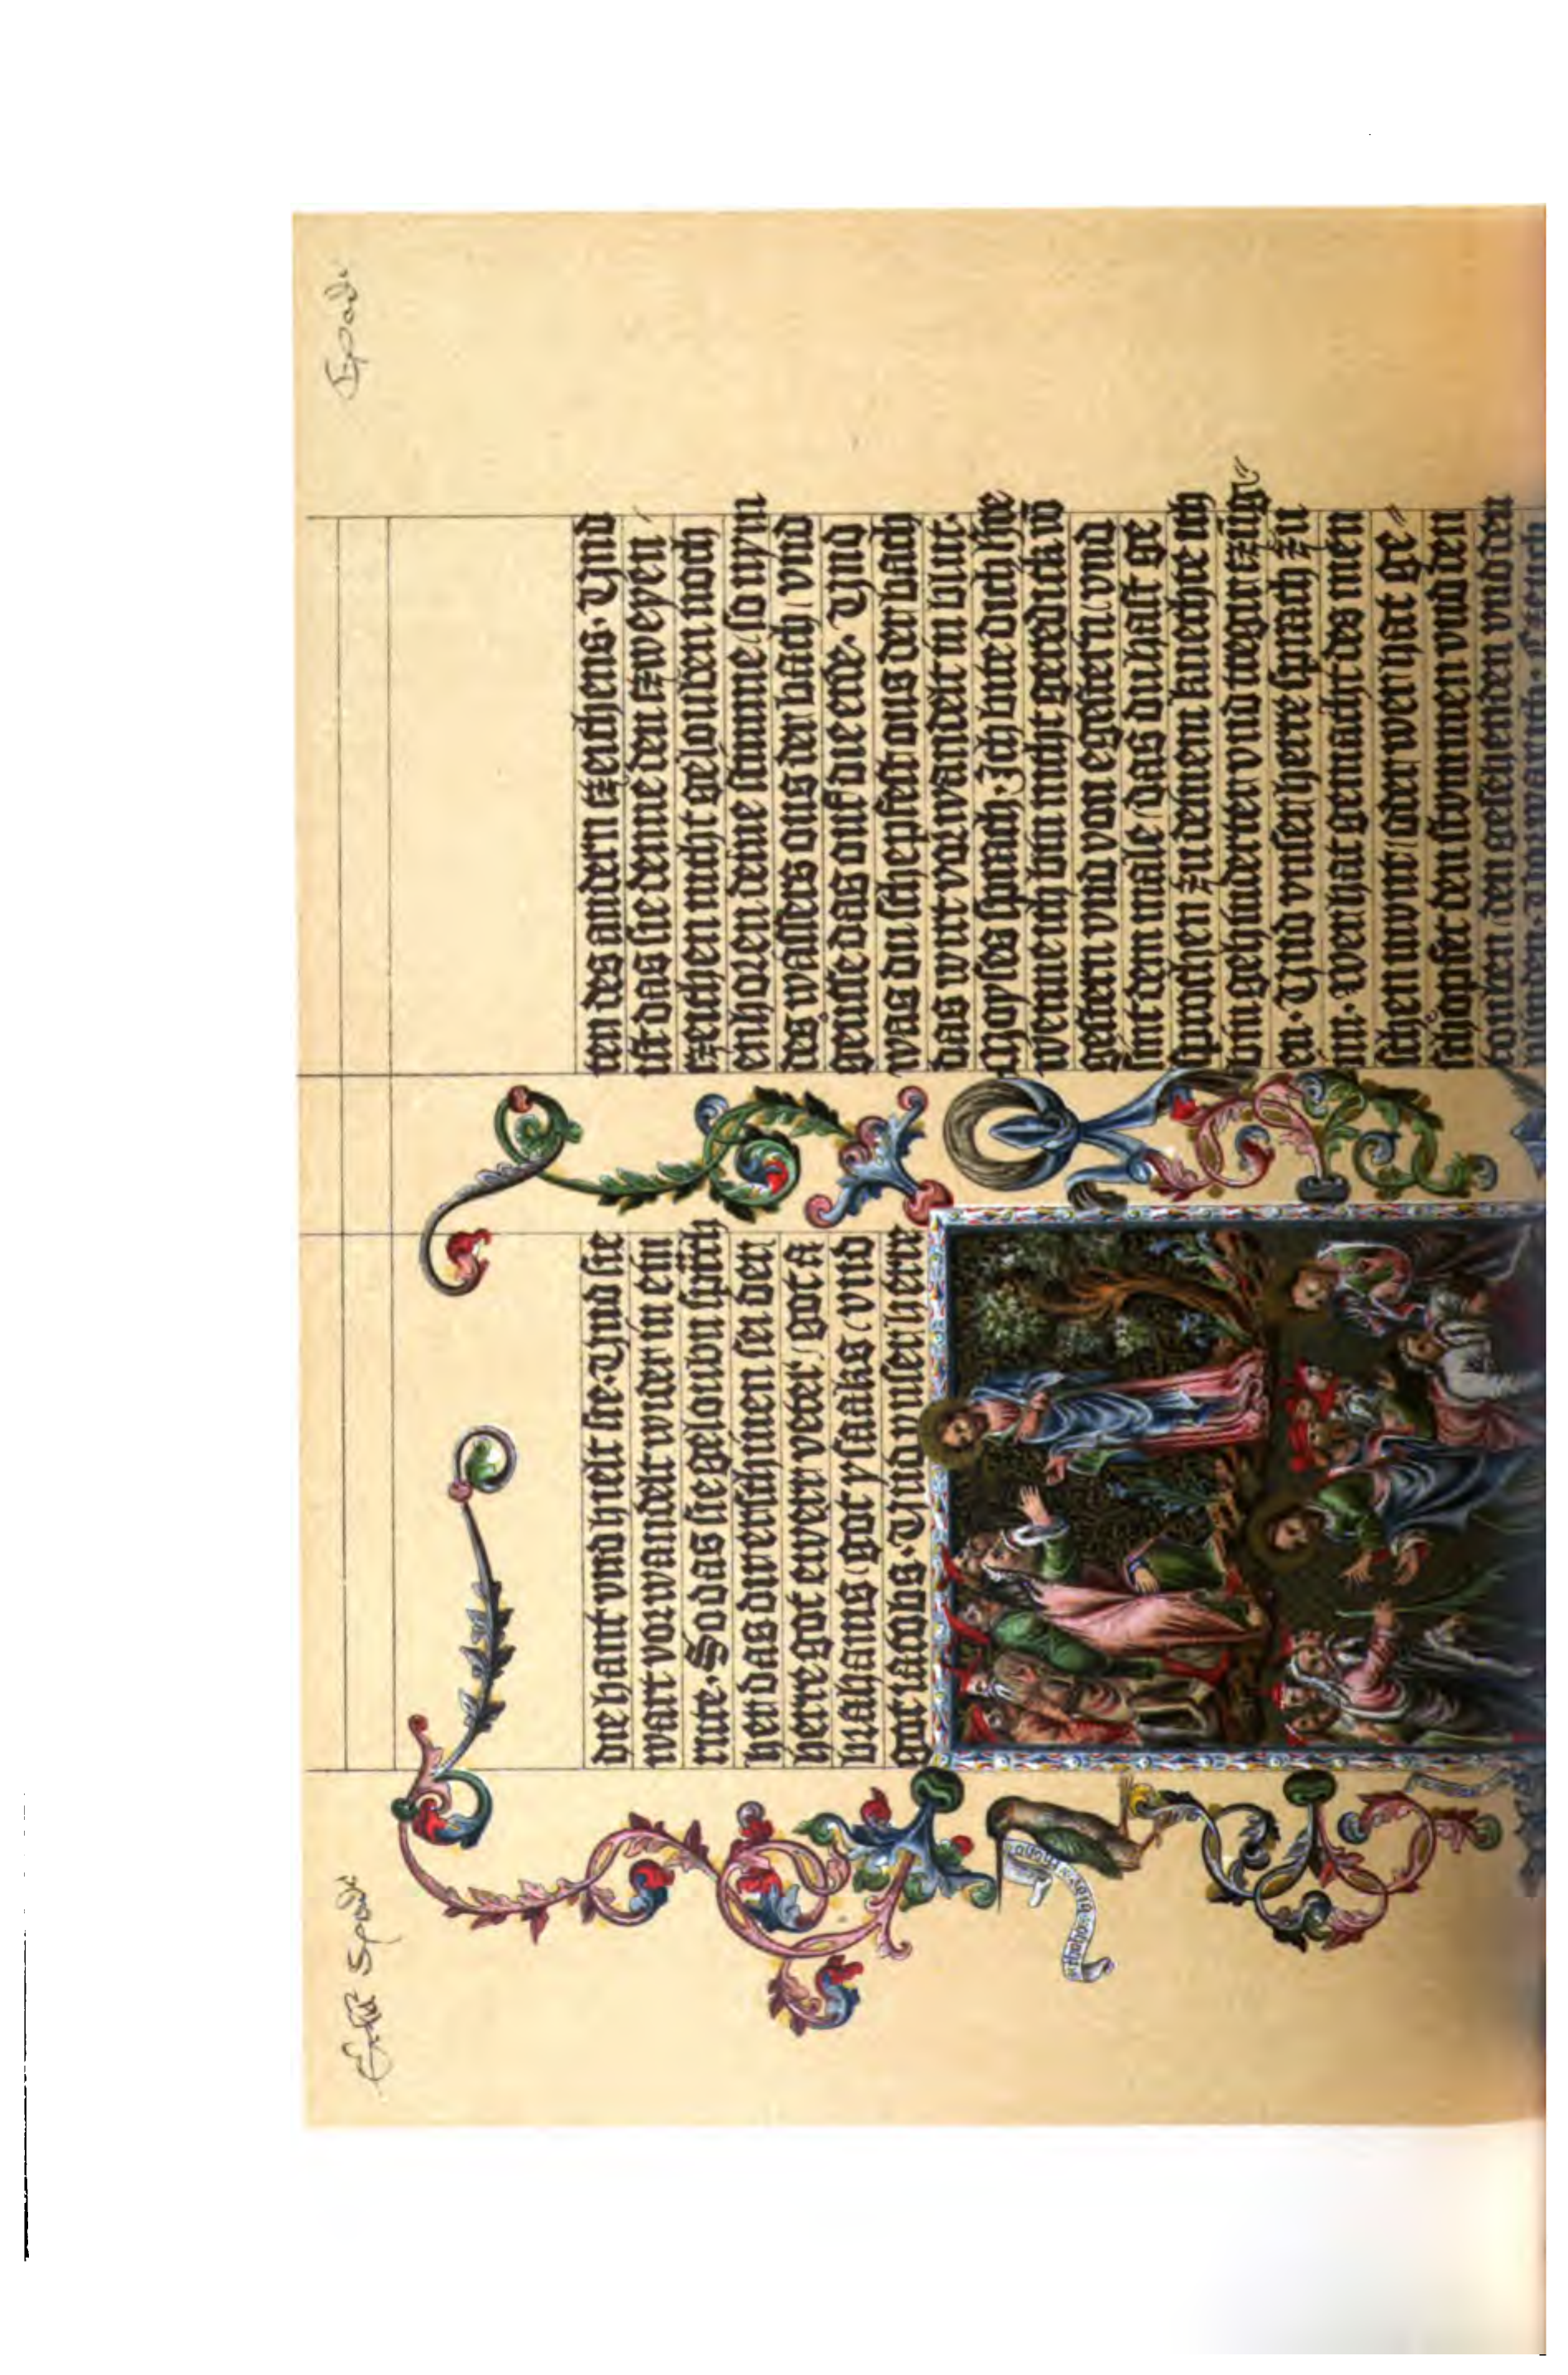 Exo
Erste Spalte
die hant vnd hielt sie. Vnd sy
wart vorwandelt wider in ein
rute. So das sie gelouben sprach
her das dir erschinen sei der
herre got ewrer veter, got a
brahams, got ysaaks, vnd
got iacobs. Vnd vnser herre
ten des andern tzeichens. Vnd
ist das sie denne den zweyen
tzeichen nicht gelouben noch
enhoren werden deine stimme, so nym
des wassers ous der bach, vnd
geusse das ouf das erde. Vnd
was du schephest ous der bach
das wirt vorwandelt in blut.
Moyses sprach. Ich bite dich
wenne ich bin nicht gespreche
gestern vnd von egestern vnd
sint der male, das du hast ge
sprochen zu deinen knechte bin
vnd treger zung
en. Vnd vnser herre sprach zu
im. wer hat gemacht des men
schen munt, oder wer hat ge
schopfet den stommen vnd den
touben den sehenden vnd den